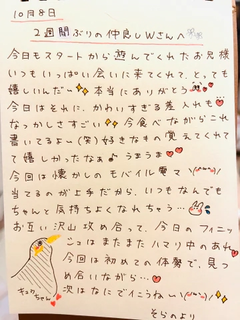 10月8日
2週間ぶりの仲良しWさんへ
今日もスタートから遊んでくれたお兄様
いつもいっぱい会いに来てくれて、とっても
嬉しいんだ〜✨本当にありがとう
今日はそれに、かわいすぎる差入れも❤
なつかしさすごい✨今食べながらこれ
書いてるよー(笑)好きなもの覚えてくれて
て嬉しかったなぁ♪うまうま❤
今日は懐かしのモバイル電マ
当てるのが上手だから、いつもなんでも
ちゃんと気持ちよくなれちゃう…
お互い沢山攻め合って、今日のフィニッ
シュはまたまたハマり中のあれ❤
今回は初めての体勢で、見つ
め合いながら…❤
次はなにでイこうねぃ
キュウ
ちゃん
そらのより